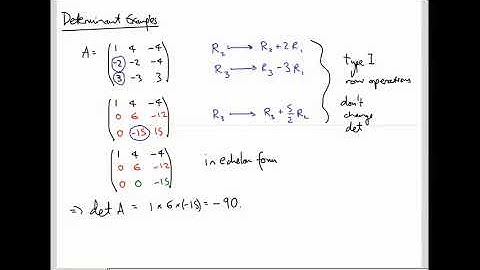 Determinant Examples
A = ( 1 4 -4
-2 -2 -4
3 -3 3 )
R₂ ⟼ R₂ + 2R₁
R₃ ⟼ R₃ - 3R₁
type I
row operations
don't
change
det
( 1 4 -4
0 6 -12
0 -15 15 )
R₃ ⟼ R₃ + 5/2 R₂
( 1 4 -4
0 6 -12
0 0 -15 )
in echelon form
⇒ det A = 1 × 6 × (-15) = -90.